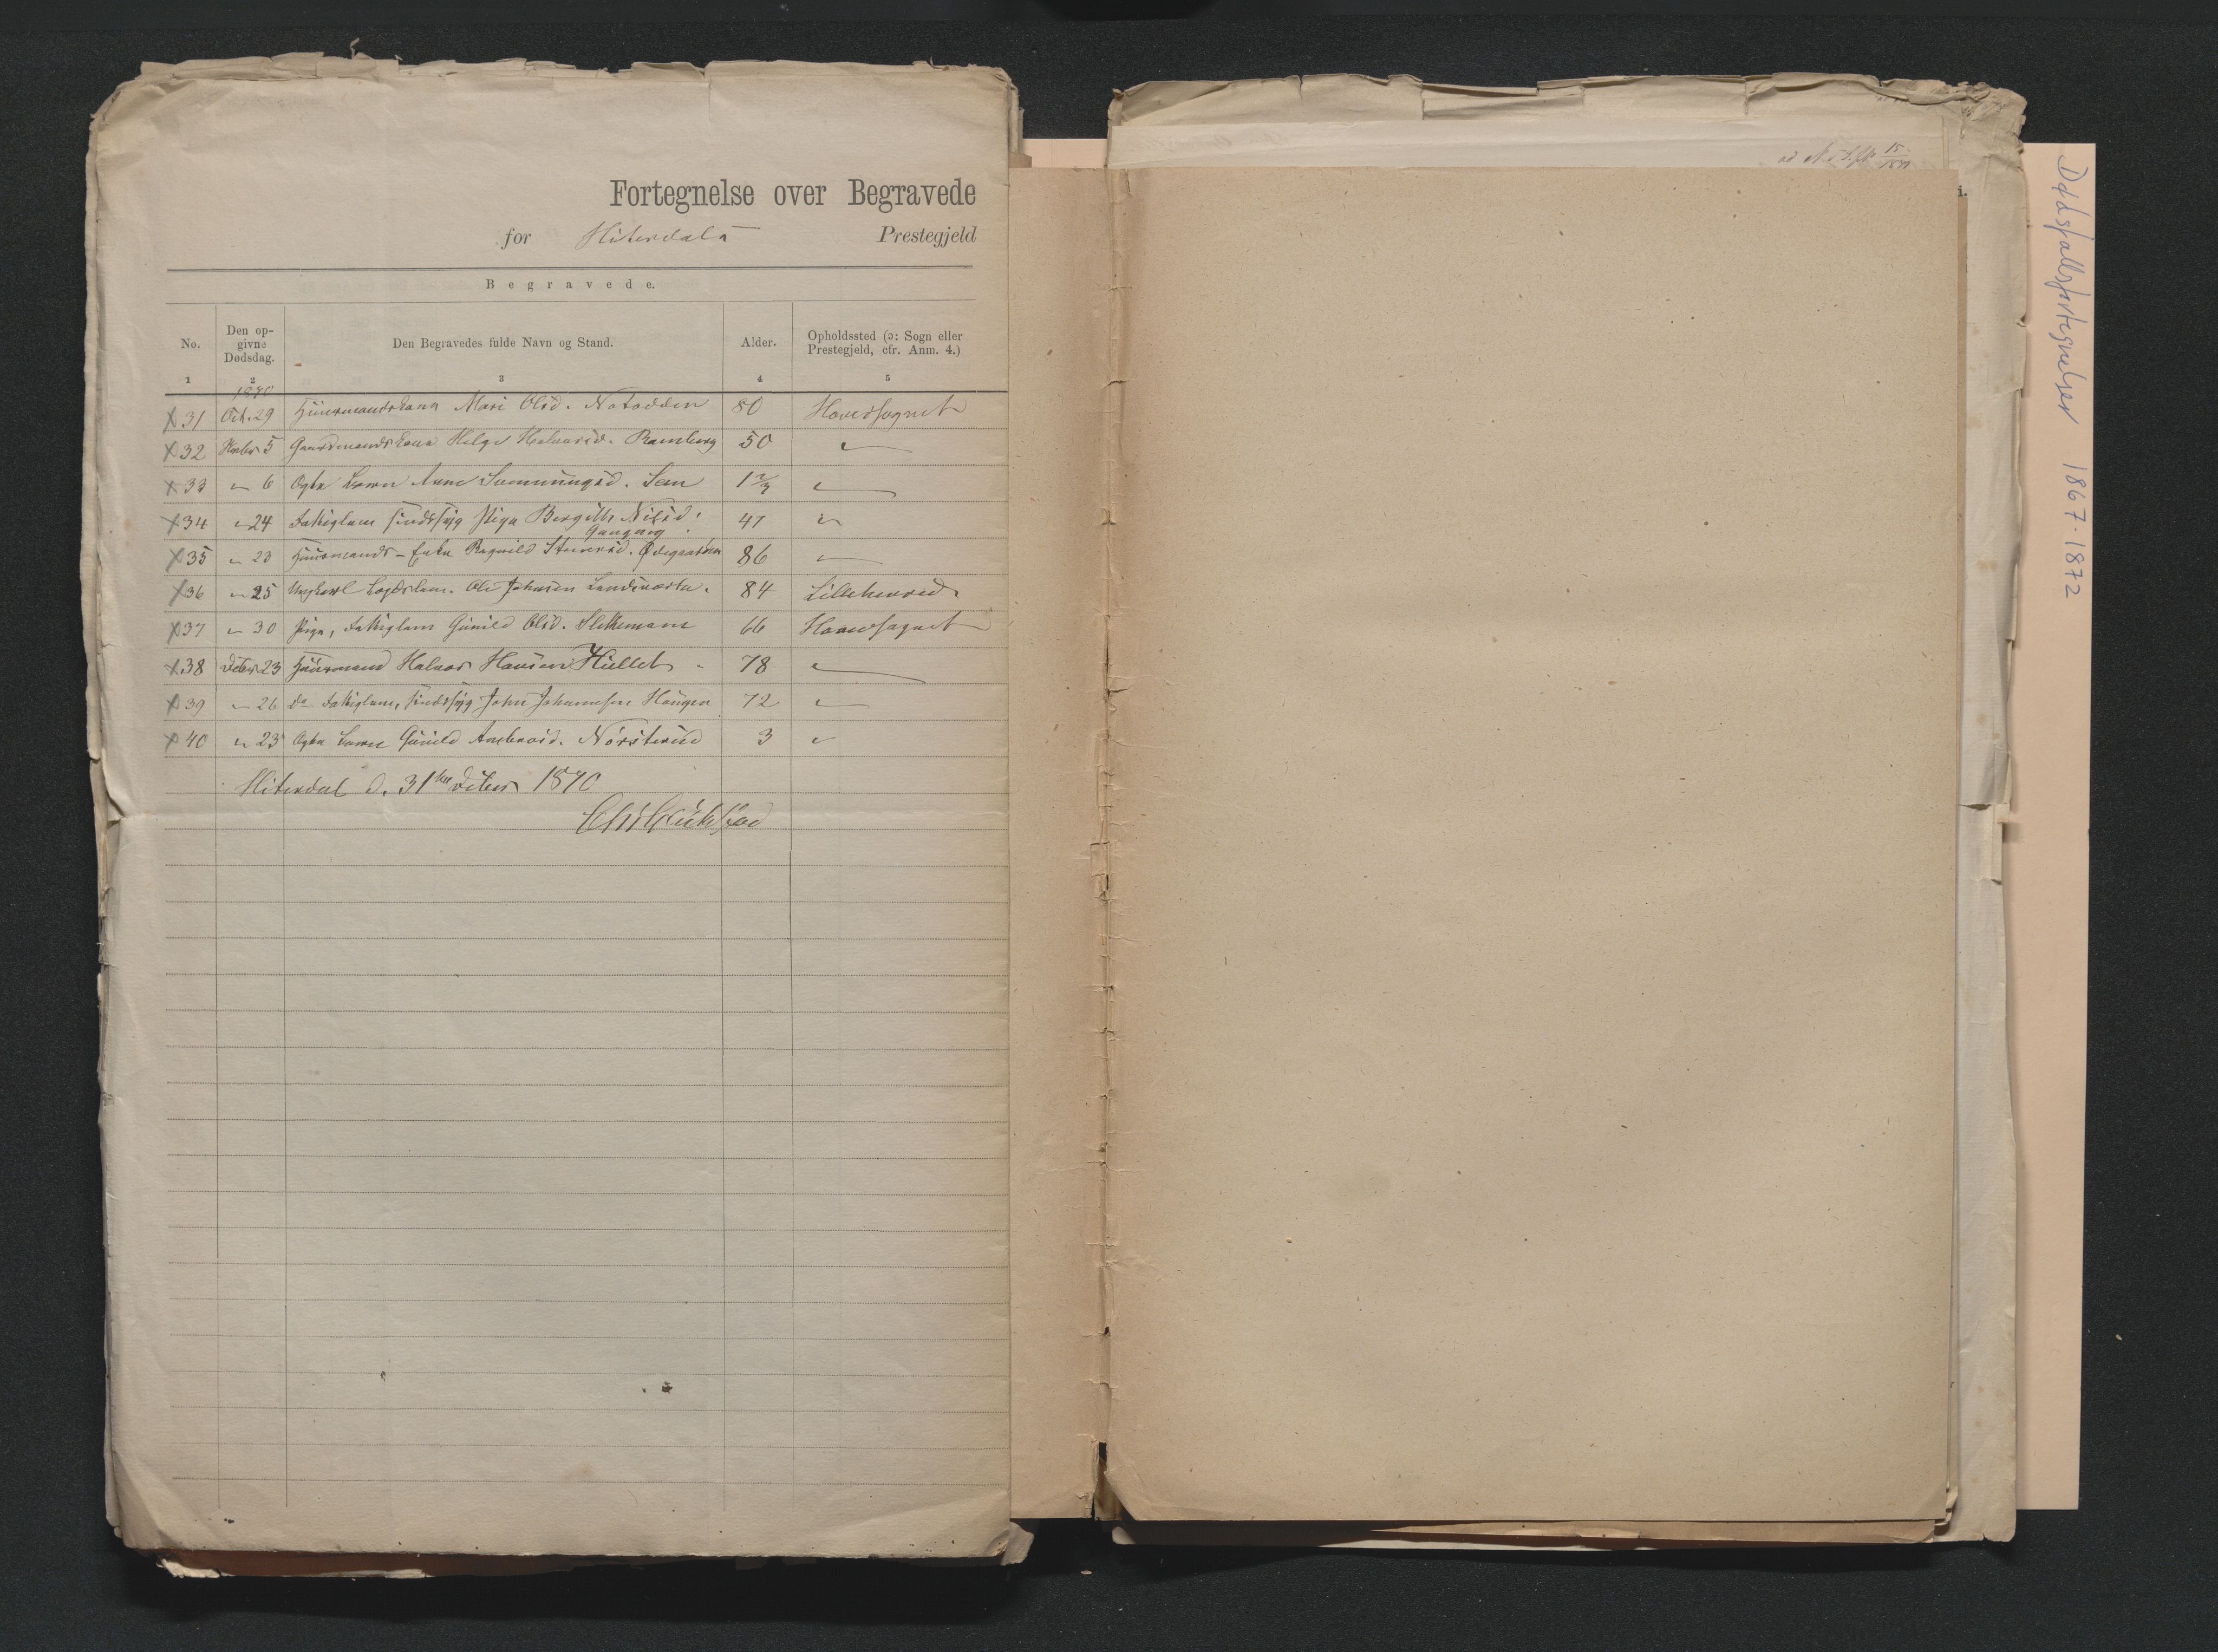 Fortegnelse over Begravede
for Hiterdals Prestegjeld
Begravede.
No. Den opgivne Dødsdag. Den Begravedes fulde Navn og Stand. Alder. Opholdssted (ɔ: Sogn eller Prestegjeld, cfr. Anm. 4.)
1 2 3 4 5
1870
31 Oct. 29 Huusmandskone Mari Olsd. Notodden 80 Hovedsognet
32 Novbr 5 Gaardmandskone Helge Halvorsd. Ramberg 50 "
33 " 6 Ægte Barn Anne Sæmungsd. Sem 1 2/3 "
34 " 24 Fattiglem sindssyg Pige Bergith Nilsd. 47 "
35 " 23 Huusmands-Enke Ragnild Steinersd. Ødegaarden 86 "
36 " 25 Ungkarl Lægdslem. Ole Johnsen 84 Lilleherred
37 " 30 Pige, Fattiglem Gunild Olsd. 66 Hovedsognet
38 Decbr 23 Huusmand Halvor Hansen 78 "
39 " 26 Do Fattiglem, sindssyg John Johannesen Haugen 72 "
40 " 23 Ægte Barn Gunild 3 "
Hiterdal d. 31te Decbr 1870
15
Dødsfallsfortegnelser 1867-1872